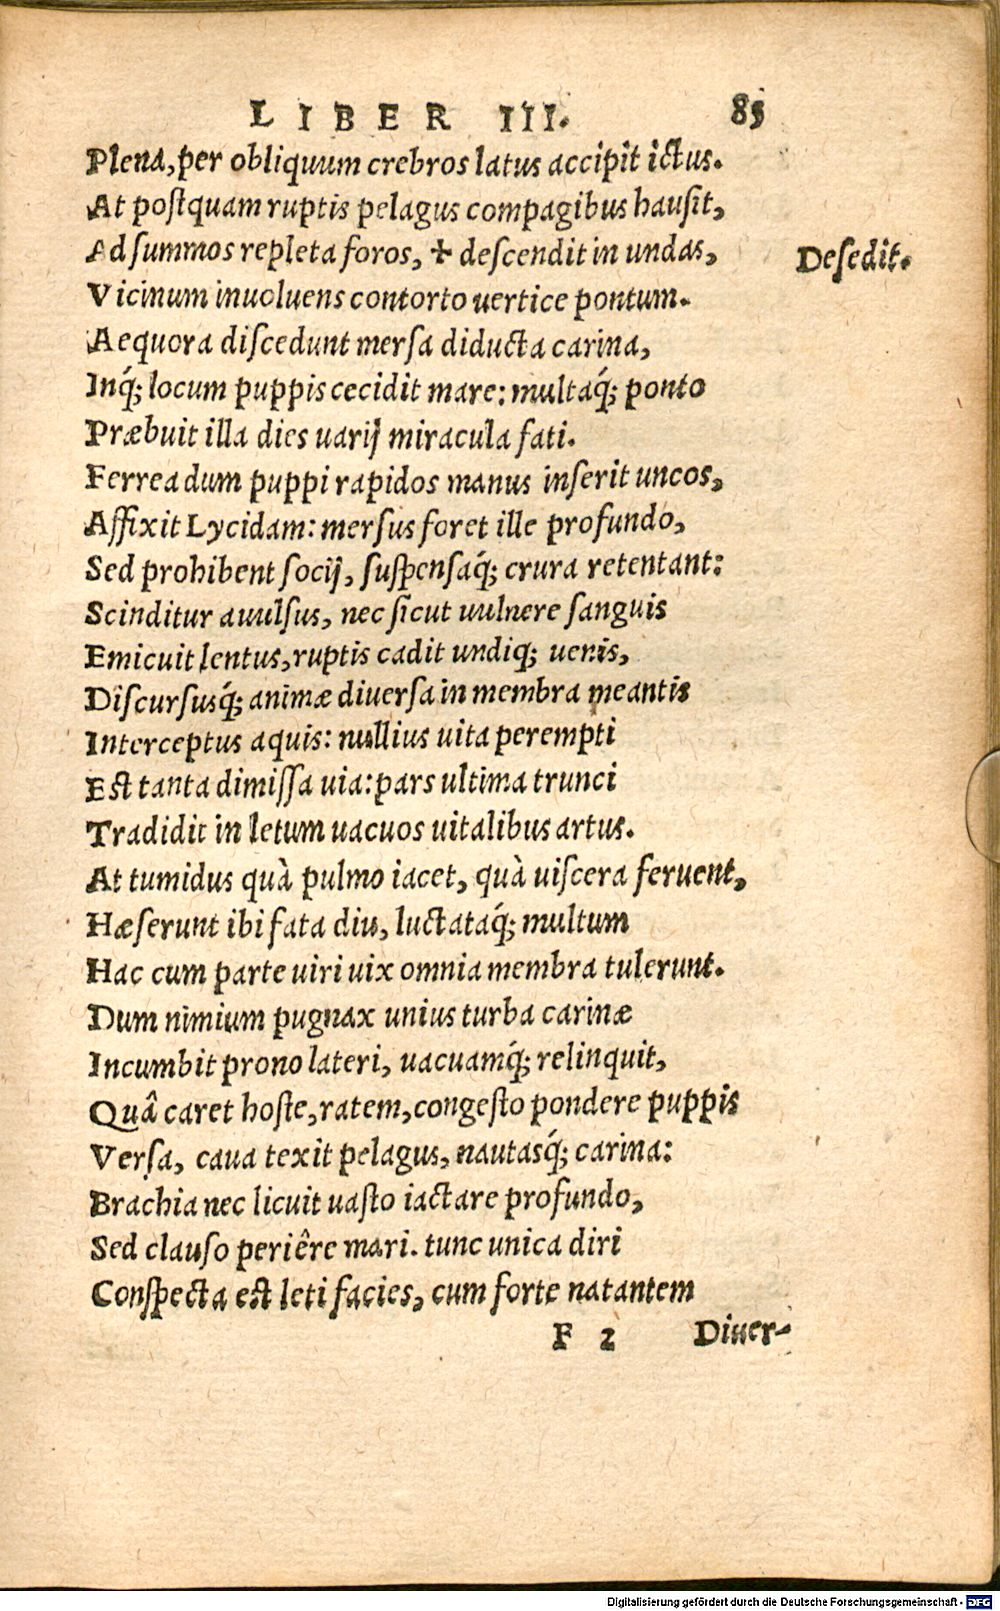 LIBER III. 85
Plena, per obliquum crebros latus accipit ictus.
At postquam ruptis pelagus compagibus hausit,
Ad summos repleta foros, ✢ descendit in undas, Desedit.
Vicinum inuoluens contorto uertice pontum.
Aequora discedunt mersa diducta carina,
Inq́; locum puppis cecidit mare: multaq́; ponto
Præbuit illa dies uarij miracula fati.
Ferrea dum puppi rapidos manus inserit uncos,
Affixit Lycidam: mersus foret ille profundo,
Sed prohibent socij, suspensaq́; crura retentant:
Scinditur auulsus, nec sicut uulnere sanguis
Emicuit lentus, ruptis cadit undiq; uenis,
Discursusq́; animæ diuersa in membra meantis
Interceptus aquis: nullius uita perempti
Est tanta dimissa uia: pars ultima trunci
Tradidit in letum uacuos uitalibus artus.
At tumidus quà pulmo iacet, quà uiscera feruent,
Hæserunt ibi fata diu, luctataq́; multum
Hac cum parte uiri uix omnia membra tulerunt.
Dum nimium pugnax unius turba carinæ
Incumbit prono lateri, uacuamq́; relinquit,
Quâ caret hoste, ratem, congesto pondere puppis
Versa, caua texit pelagus, nautasq́; carina:
Brachia nec licuit uasto iactare profundo,
Sed clauso periêre mari. tunc unica diri
Conspecta est leti facies, cum forte natantem
F 2 Diuer-
Digitalisierung gefördert durch die Deutsche Forschungsgemeinschaft - DFG